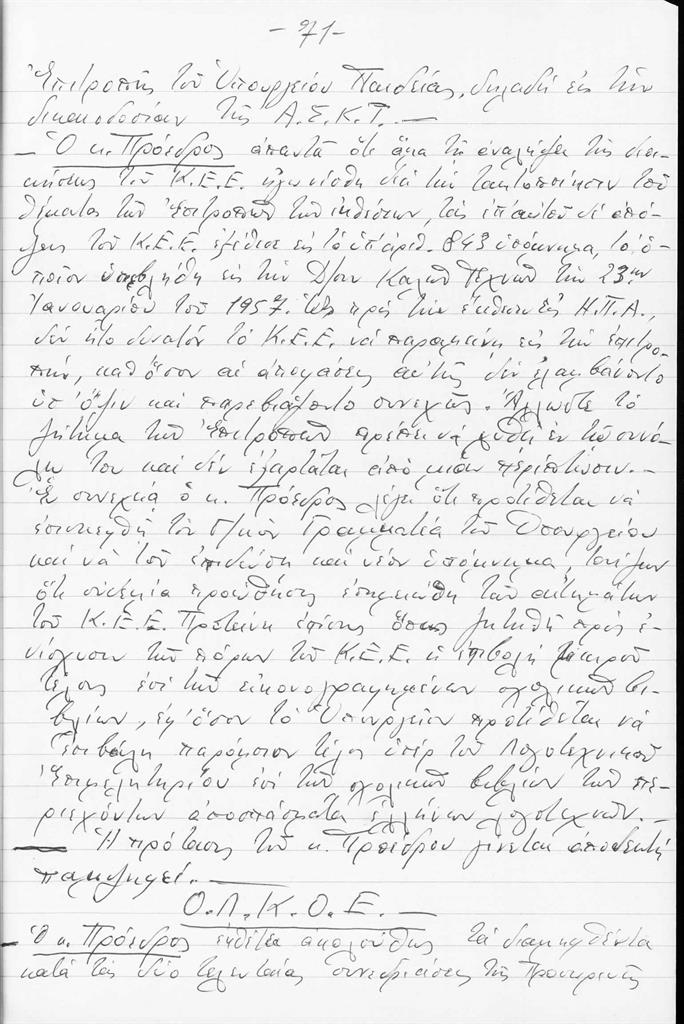 - 71 -
Ἐπιτροπῆς τοῦ Ὑπουργείου Παιδείας, δηλαδὴ εἰς τὴν
δικαιοδοσίαν τῆς Α.Σ.Κ.Τ. —
— Ὁ κ. Πρόεδρος ἀπαντᾶ ὅτι ἅμα τῇ ἀναλήψει τῆς διοι-
κήσεως τοῦ Κ.Ε.Ε. ἠγωνίσθη διὰ τὴν τακτοποίησιν τοῦ
θέματος τῶν Ἐπιτροπῶν τῶν ἐκθέσεων, τὰς ἐπ' αὐτοῦ δὲ ἀπό-
ψεις τοῦ Κ.Ε.Ε. ἐξέθεσε εἰς τὸ ὑπ' ἀριθ. 843 ὑπόμνημα, τὸ ὁ-
ποῖον ὑπεβλήθη εἰς τὴν Δ/σιν Καλῶν Τεχνῶν τὴν 23ην
Ἰανουαρίου τοῦ 1957. Ὡς πρὸς τὴν ἔκθεσιν εἰς Η.Π.Α.,
δὲν ἦτο δυνατὸν τὸ Κ.Ε.Ε. νὰ παραμείνῃ εἰς τὴν ἐπιτρο-
πήν, καθ' ὅσον αἱ ἀποφάσεις αὐτῆς δὲν ἐλαμβάνοντο
ὑπ' ὄψιν καὶ παρεβιάζοντο συνεχῶς. Ἄλλωστε τὸ
ζήτημα τῶν Ἐπιτροπῶν πρέπει νὰ λυθῇ ἐν τῷ συνό-
λῳ του καὶ δὲν ἐξαρτᾶται ἀπὸ μίαν περίπτωσιν. —
Ἐν συνεχείᾳ ὁ κ. Πρόεδρος λέγει ὅτι προτίθεται νὰ
ἐπισκεφθῇ τὸν Γ/κὸν Γραμματέα τοῦ Ὑπουργείου
καὶ νὰ τοῦ ἐπιδώσῃ καὶ νέον ὑπόμνημα, τονίζων
ὅτι οὐδεμία προώθησις ἐσημειώθη τῶν αἰτημάτων
τοῦ Κ.Ε.Ε. Προτείνει ἐπίσης ὅπως ζητηθῇ πρὸς ἐ-
νίσχυσιν τῶν πόρων τοῦ Κ.Ε.Ε. ἡ ἐπιβολὴ μικροῦ
τέλους ἐπὶ τῶν εἰκονογραφημένων σχολικῶν βι-
βλίων, ἐφ' ὅσον τὸ Ὑπουργεῖον προτίθεται νὰ
ἐπιβάλῃ παρόμοιον τέλος ὑπὲρ τοῦ Λογοτεχνικοῦ
Ἐπιμελητηρίου ἐπὶ τῶν σχολικῶν βιβλίων τῶν πε-
ριεχόντων ἀποσπάσματα ἑλλήνων λογοτεχνῶν. —
— Ἡ πρότασις τοῦ κ. Προέδρου γίνεται ἀποδεκτὴ
παμψηφεί. —
Ο.Λ.Κ.Ο.Ε. —
— Ὁ κ. Πρόεδρος ἐκθέτει ἀκολούθως τὰ διαμειφθέντα
κατὰ τὰς δύο τελευταίας συνεδριάσεις τῆς Προσωρινῆς